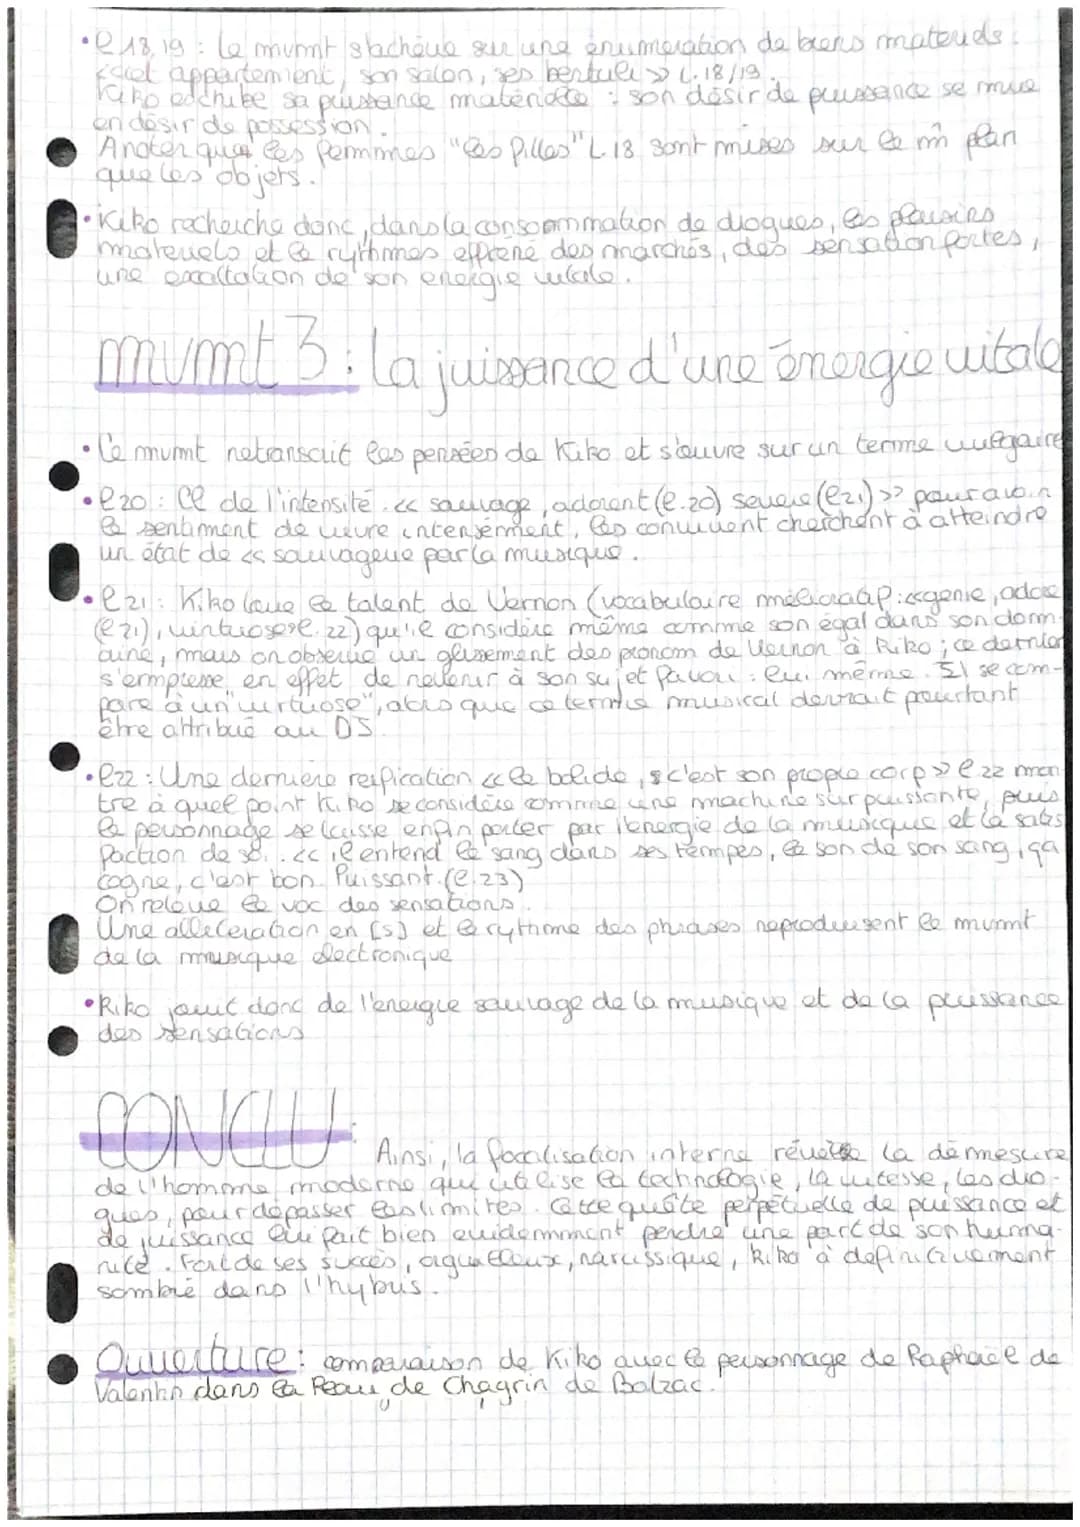 • l 18, 19 : le mvmt s'achève sur une énumération de biens materiels :
« cet appartement, son salon, ses » L. 18/19.
Kiko exhibe sa puissance matérielle : son désir de puissance se mue
en désir de possession.
A noter que les femmes "les filles" L 18 sont mises sur le m̂ plan
que les objets.
• Kiko recherche donc, dans la consommation de drogues, les plaisirs
materiels et le rythmes effréné des marchés, des sensation fortes,
une exaltation de son énergie vitale.
mvmt 3 : la juissance d'une énergie vitale
• Ce mvmt retranscrit les pensées de Kiko et s'ouvre sur un terme vulgaire
• l 20 : CL de l'intensité « sauvage, adorent (l. 20) severe (l 21) » pour avoir
le sentiment de vivre intensément, les convivent cherchent à atteindre
un état de « sauvagerie par la musique.
• l 21 : Kiko loue le talent de Vernon (vocabulaire mélioratif : « génie, adore
(l 21), virtuose » l. 22) qu'il considère même comme son égal dans son dom-
aine, mais on observe un glissement des pronom de Vernon à Kiko ; ce dernier
s'empresse en effet de revenir à son sujet favori : lui même. Il se com-
pare à un "virtuose", alors que ce terme musical devrait pourtant
être attribué au DJ.
• l 22 : Une dernière reification « le bolide, c'est son propre corp » l 22 mon
tre à quel point Kiko se considère comme une machine surpuissante, puis
le personnage se laisse enfin porter par l'energie de la musique et la satis
faction de soi. « il entend le sang dans ses tempes, le son de son sang, ça
cogne, c'est bon. Puissant. (l. 23)
On relève le voc des sensations.
Une alliteration en [s] et le rythme des phrases reproduisent le mvmt
de la musique electronique
• Kiko jouit donc de l'energie sauvage de la musique et de la puissance
des sensations
CONCLU :
Ainsi, la focalisation interne révèle la démesure
de l'homme moderne qui utilise la technologie, la vitesse, les dro-
gues, pour dépasser les limites. Cette quête perpétuelle de puissance et
de juissance lui fait bien evidemment perdre une part de son huma-
nité. Fort de ses succès, orgueilleux, narcissique, Kiko à definitivement
sombré dans l'hybris.
Ouverture : comparaison de Kiko avec le personnage de Raphaël de
Valentin dans la Peau de Chagrin de Balzac.